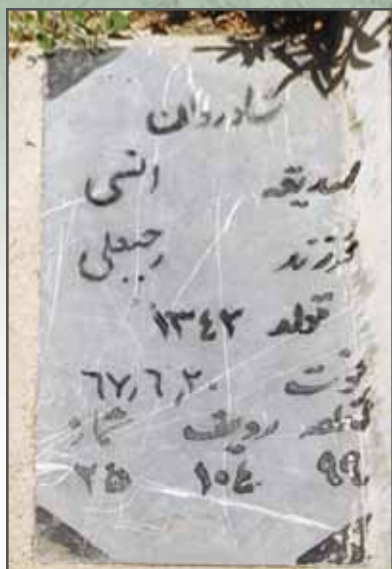 شادروان
صدیقه انسی
فرزند رجبعلی
تولد ۱۳۴۳
فوت ۶۷٫۶٫۲۰
قطعه ردیف شماره
۹۹ ۱۰۴ ۳۵